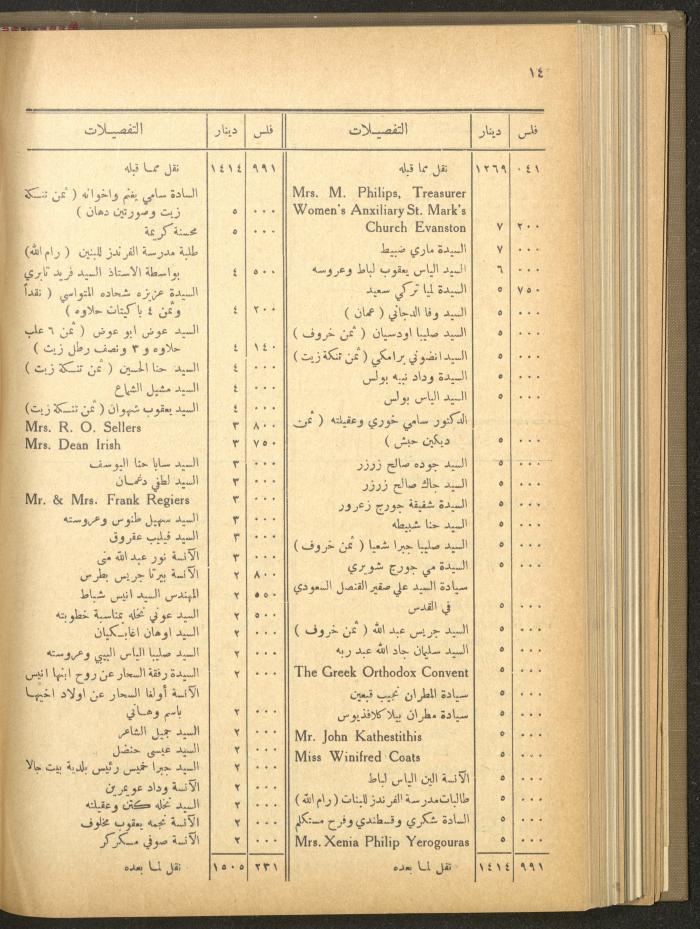 ١٤
فلس دينار التفصيلات
٠٤١ ١٢٦٩ نقل مما قبله
Mrs. M. Philips, Treasurer
Women's Anxiliary St. Mark's
٢٠٠ ٧ Church Evanston
٠٠٠ ٧ السيدة ماري ضبيط
٠٠٠ ٦ السيد الياس يعقوب لباط وعروسه
٧٥٠ ٥ السيدة لميا تركي سعيد
٠٠٠ ٥ السيد وفا الدجاني ( عمان )
٠٠٠ ٥ السيد صليبا اودسيان ( ثمن خروف )
٠٠٠ ٥ السيد انضوني برامكي ( ثمن تنكة زيت )
٠٠٠ ٥ السيدة وداد نبيه بولس
٠٠٠ ٥ السيد الياس بولس
الدكتور سامي خوري وعقيلته ( ثمن
٠٠٠ ٥ ديكين حبش )
٠٠٠ ٥ السيد جوده صالح زرزر
٠٠٠ ٥ السيد جاك صالح زرزر
٠٠٠ ٥ السيدة شفيقة جورج زعرور
٠٠٠ ٥ السيد حنا شبيطه
٠٠٠ ٥ السيد صليبا جبرا شعيا ( ثمن خروف )
٠٠٠ ٥ السيدة مي جورج شويري
سيادة السيد علي صقير القنصل السعودي
٠٠٠ ٥ في القدس
٠٠٠ ٥ السيد جريس عبد الله ( ثمن خروف )
٠٠٠ ٥ السيد سليمان جاد الله عبد ربه
٠٠٠ ٥ The Greek Orthodox Convent
٠٠٠ ٥ سيادة المطران نجيب قبعين
٠٠٠ ٥ سيادة مطران بيلا كلافذيوس
٠٠٠ ٥ Mr. John Kathestithis
٠٠٠ ٥ Miss Winifred Coats
٠٠٠ ٥ الآنسة الين الياس لباط
٠٠٠ ٥ طالبات مدرسة الفرندز للبنات ( رام الله )
٠٠٠ ٥ السادة شكري وقسطندي وفرح مستكلم
٠٠٠ ٥ Mrs. Xenia Philip Yerogouras
٩٩١ ١٤١٤ نقل لما بعده
فلس دينار التفصيلات
٩٩١ ١٤١٤ نقل مما قبله
السادة سامي يغنم واخوانه ( ثمن تنكة
٠٠٠ ٥ زيت وصورتين دهان )
٠٠٠ ٥ محسنة كريمة
طلبة مدرسة الفرندز للبنين ( رام الله )
٥٠٠ ٤ بواسطة الاستاذ السيد فريد تابري
السيدة عزيزه شحاده المتواسي ( نقداً
٢٠٠ ٤ وثمن ٤ باكيتات حلاوه )
السيد عوض ابو عوض ( ثمن ٦ علب
١٤٠ ٤ حلاوه و ٣ ونصف رطل زيت )
٠٠٠ ٤ السيد حنا الحسين ( ثمن تنكة زيت )
٠٠٠ ٤ السيد مشيل الشماع
٠٠٠ ٤ السيد يعقوب شهوان ( ثمن تنكة زيت )
٨٠٠ ٣ Mrs. R. O. Sellers
٧٥٠ ٣ Mrs. Dean Irish
٠٠٠ ٣ السيد سابا حنا اليوسف
٠٠٠ ٣ السيد لطفي دغمان
٠٠٠ ٣ Mr. & Mrs. Frank Regiers
٠٠٠ ٣ السيد سهيل طنوس وعروسته
٠٠٠ ٣ السيد فيليب عفروق
٠٠٠ ٣ الآنسة نور عبد الله منى
٨٠٠ ٢ الآنسة بيرتا جريس بطرس
٥٥٠ ٢ المهندس السيد انيس شباط
٥٠٠ ٢ السيد عوني نخله بمناسبة خطوبته
٠٠٠ ٢ السيد اوهان اغابكيان
٠٠٠ ٢ السيد صليبا الياس البيبي وعروسته
٠٠٠ ٢ السيدة رفقة السحار عن روح ابنها انيس
الآنسة أولغا السحار عن اولاد اخيها
٠٠٠ ٢ باسم وهاني
٠٠٠ ٢ السيد جميل الشاعر
٠٠٠ ٢ السيد عيسى حنضل
٠٠٠ ٢ السيد جبرا خميس رئيس بلدية بيت جالا
٠٠٠ ٢ الآنسة وداد عويمرين
٠٠٠ ٢ السيد نخله كتن وعقيلته
٠٠٠ ٢ الآنسة نجمه يعقوب مخلوف
٠٠٠ ٢ الآنسة صوفي مسكركر
٢٣١ ١٥٠٥ نقل لما بعده